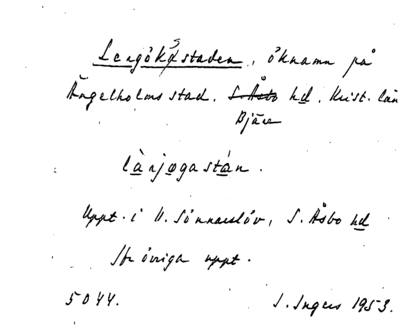 Lergöksstaden, öknamn på
Ängelholms stad. S. Åsbo hd. Krist. län
Bjäre
làrjøgastán.
Uppt. i V. Sönnarslöv, S. Åsbo hd
Se övriga uppt.
5044. I. Ingers 1953.